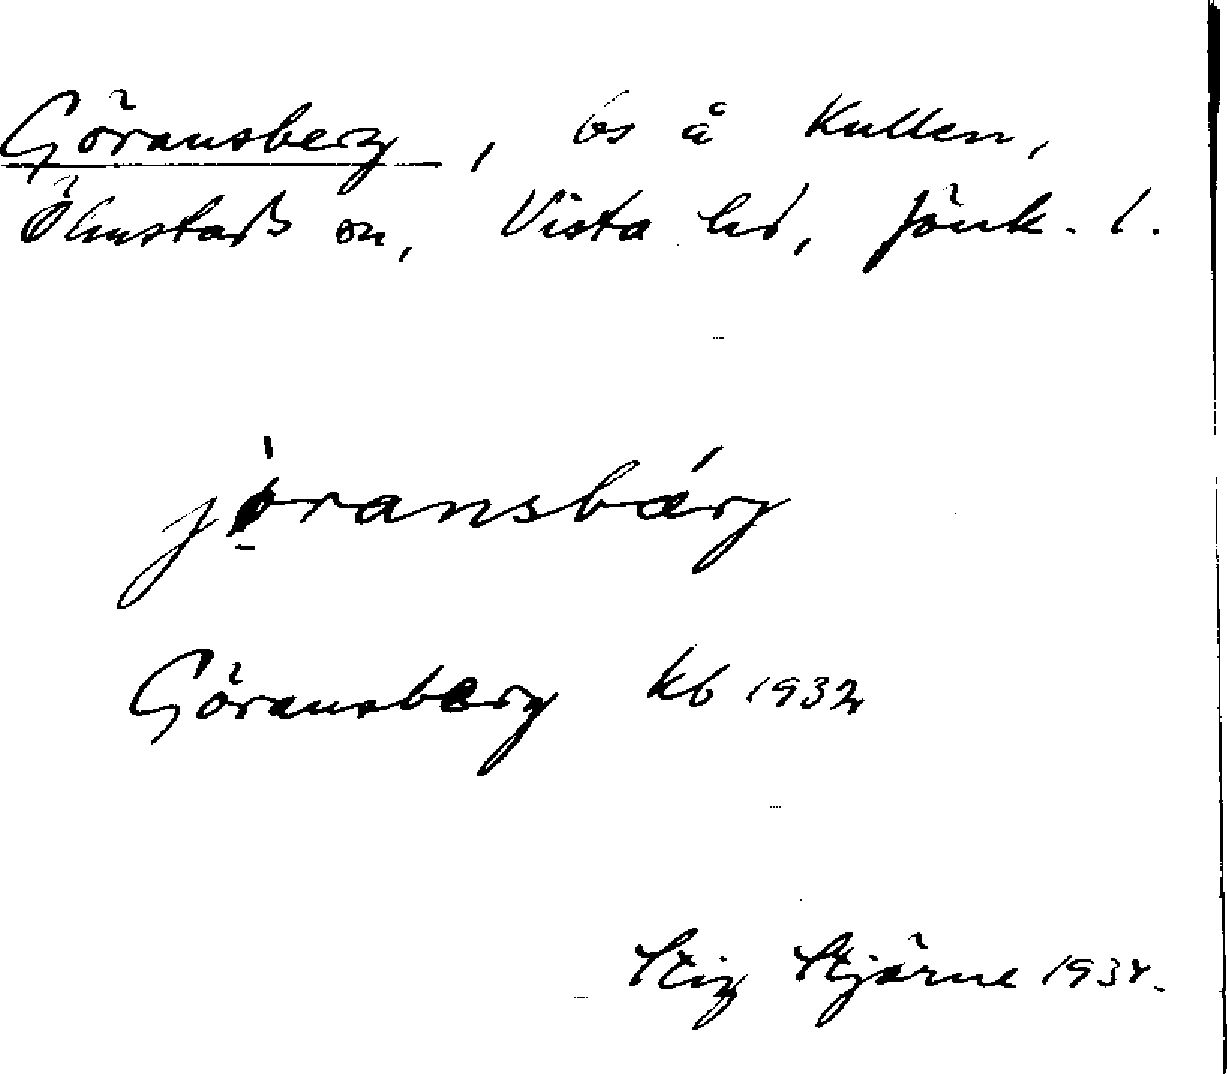 Göransberg, ls å Kullen,
Ölmstads sn, Vista hd, Jönk. l.
jöransbärg
Göransberg kb 1932
Stig Stjärne 1934.